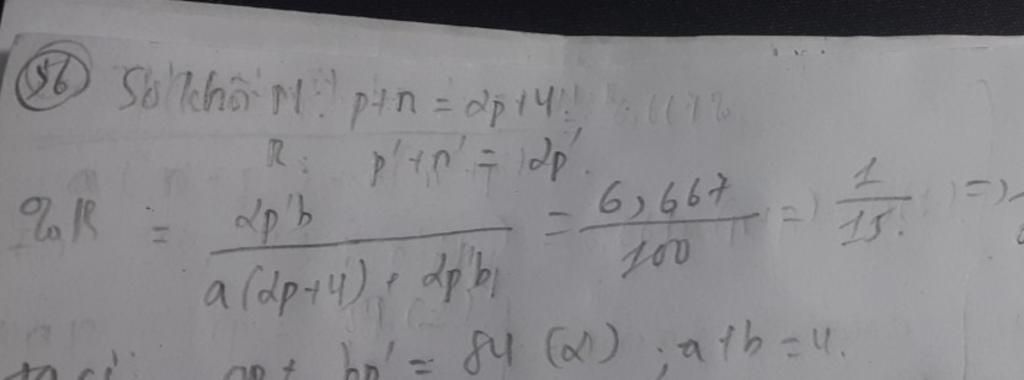 56 Số khối M: p+n = 2p+4.
R: p'+n' = 2p'.
%R = 2p'b / a(2p+4) + 2p'b = 6,667 / 100 => 1 / 15 =>
ta có: ap + bp' = 84 (2) ; a+b = 4.